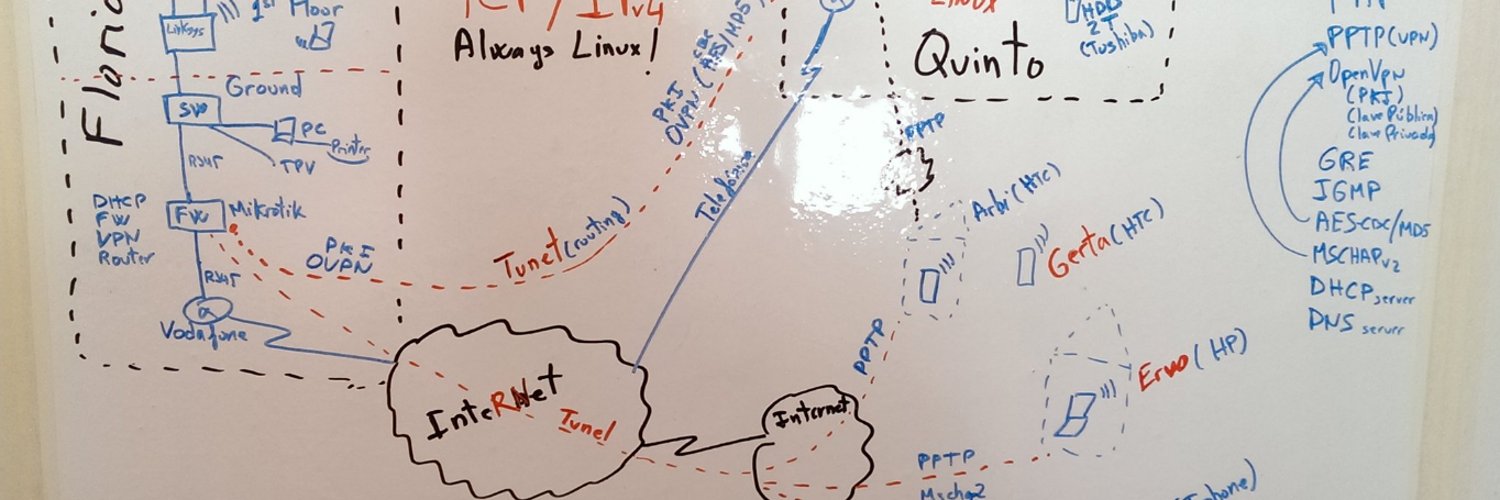 1st Floor
Linksys
Ground
SW
PC
Printer
TPV
RJ45
DHCP
FW
VPN
Router
FW
Mikrotik
RJ45
Vodafone
PKI
OVPN
TCP/IPv4
Always Linux!
PKI
OVPN (AES/MD5
Tunel (routing)
Telefónica
InteRNet
Tunel
Linux
Quinto
HDD
2T
(Toshiba)
PPTP
Arbi (HTC)
Gerta (HTC)
PPTP
Internet
Ervo (HP)
PPTP
Mschap2
PPTP (VPN)
OpenVpn
(PKI)
Clave Pública
Clave Privada
GRE
IGMP
AES-CBC/MD5
MSCHAPv2
DHCP server
DNS server